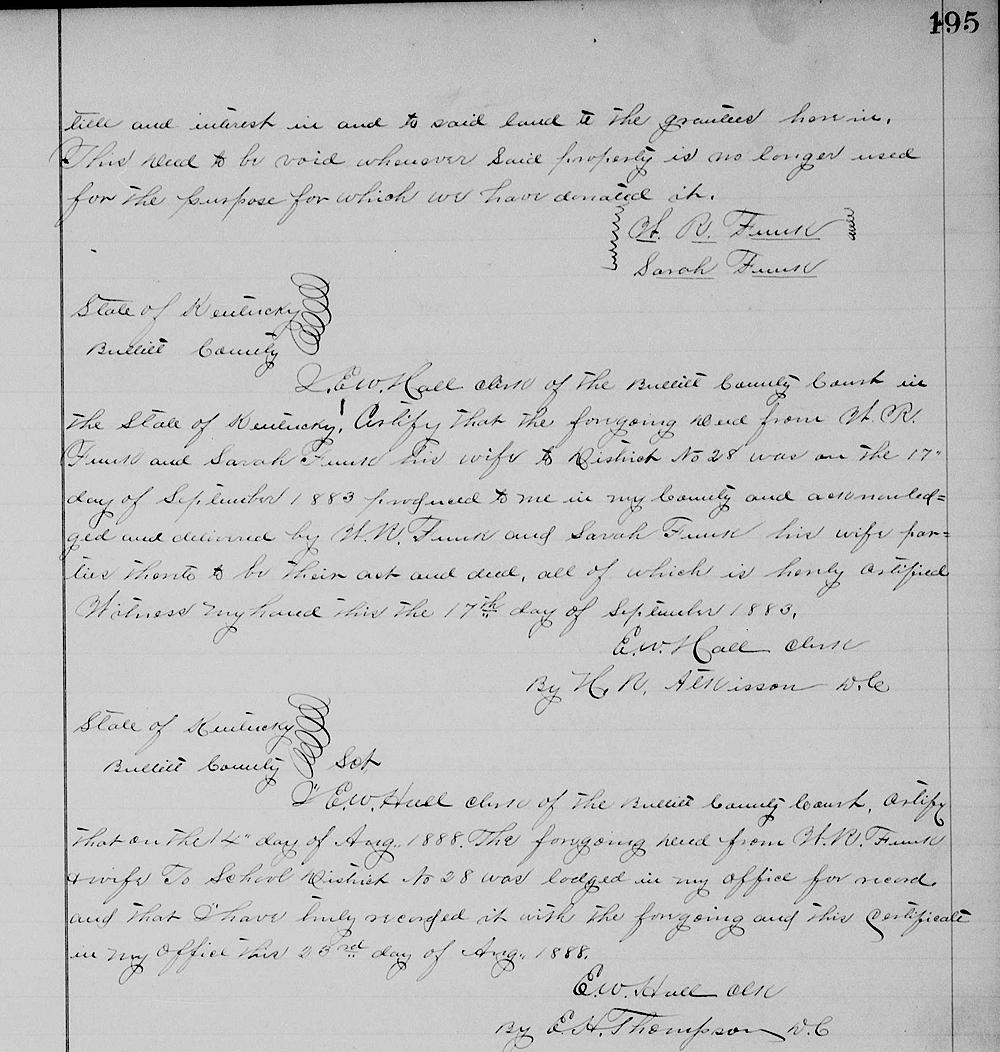 195
title and interest in and to said land to the grantees herein.
This deed to be void whenever Said property is no longer used
for the purpose for which we have donated it.
W. R. Funk
Sarah Funk
State of Kentucky
Bullitt County
I, E.W. Hall clerk of the Bullitt County Court in
the State of Kentucky, Certify that the foregoing deed from W. R.
Funk and Sarah Funk his wife to District No 28 was on the 17"
day of September 1883 produced to me in my County and acknowled=
ged and delivered by W. R. Funk and Sarah Funk his wife par=
ties thereto to be their act and deed, all of which is hereby Certified
Witness My hand this the 17th day of September 1883.
E.W. Hall clerk
By H. N. Atkisson D.C
State of Kentucky
Bullitt County Sct
I E.W. Hall clerk of the Bullitt County Court, Certify
that on the 14" day of Aug. 1888. The foregoing deed from W. R. Funk
& wife To School District No 28 was lodged in my office for record
and that I have truly recorded it with the foregoing and this Certificate
in my Office this 23rd day of Aug. 1888.
E.W. Hall clk
By E.H. Thompson D.C